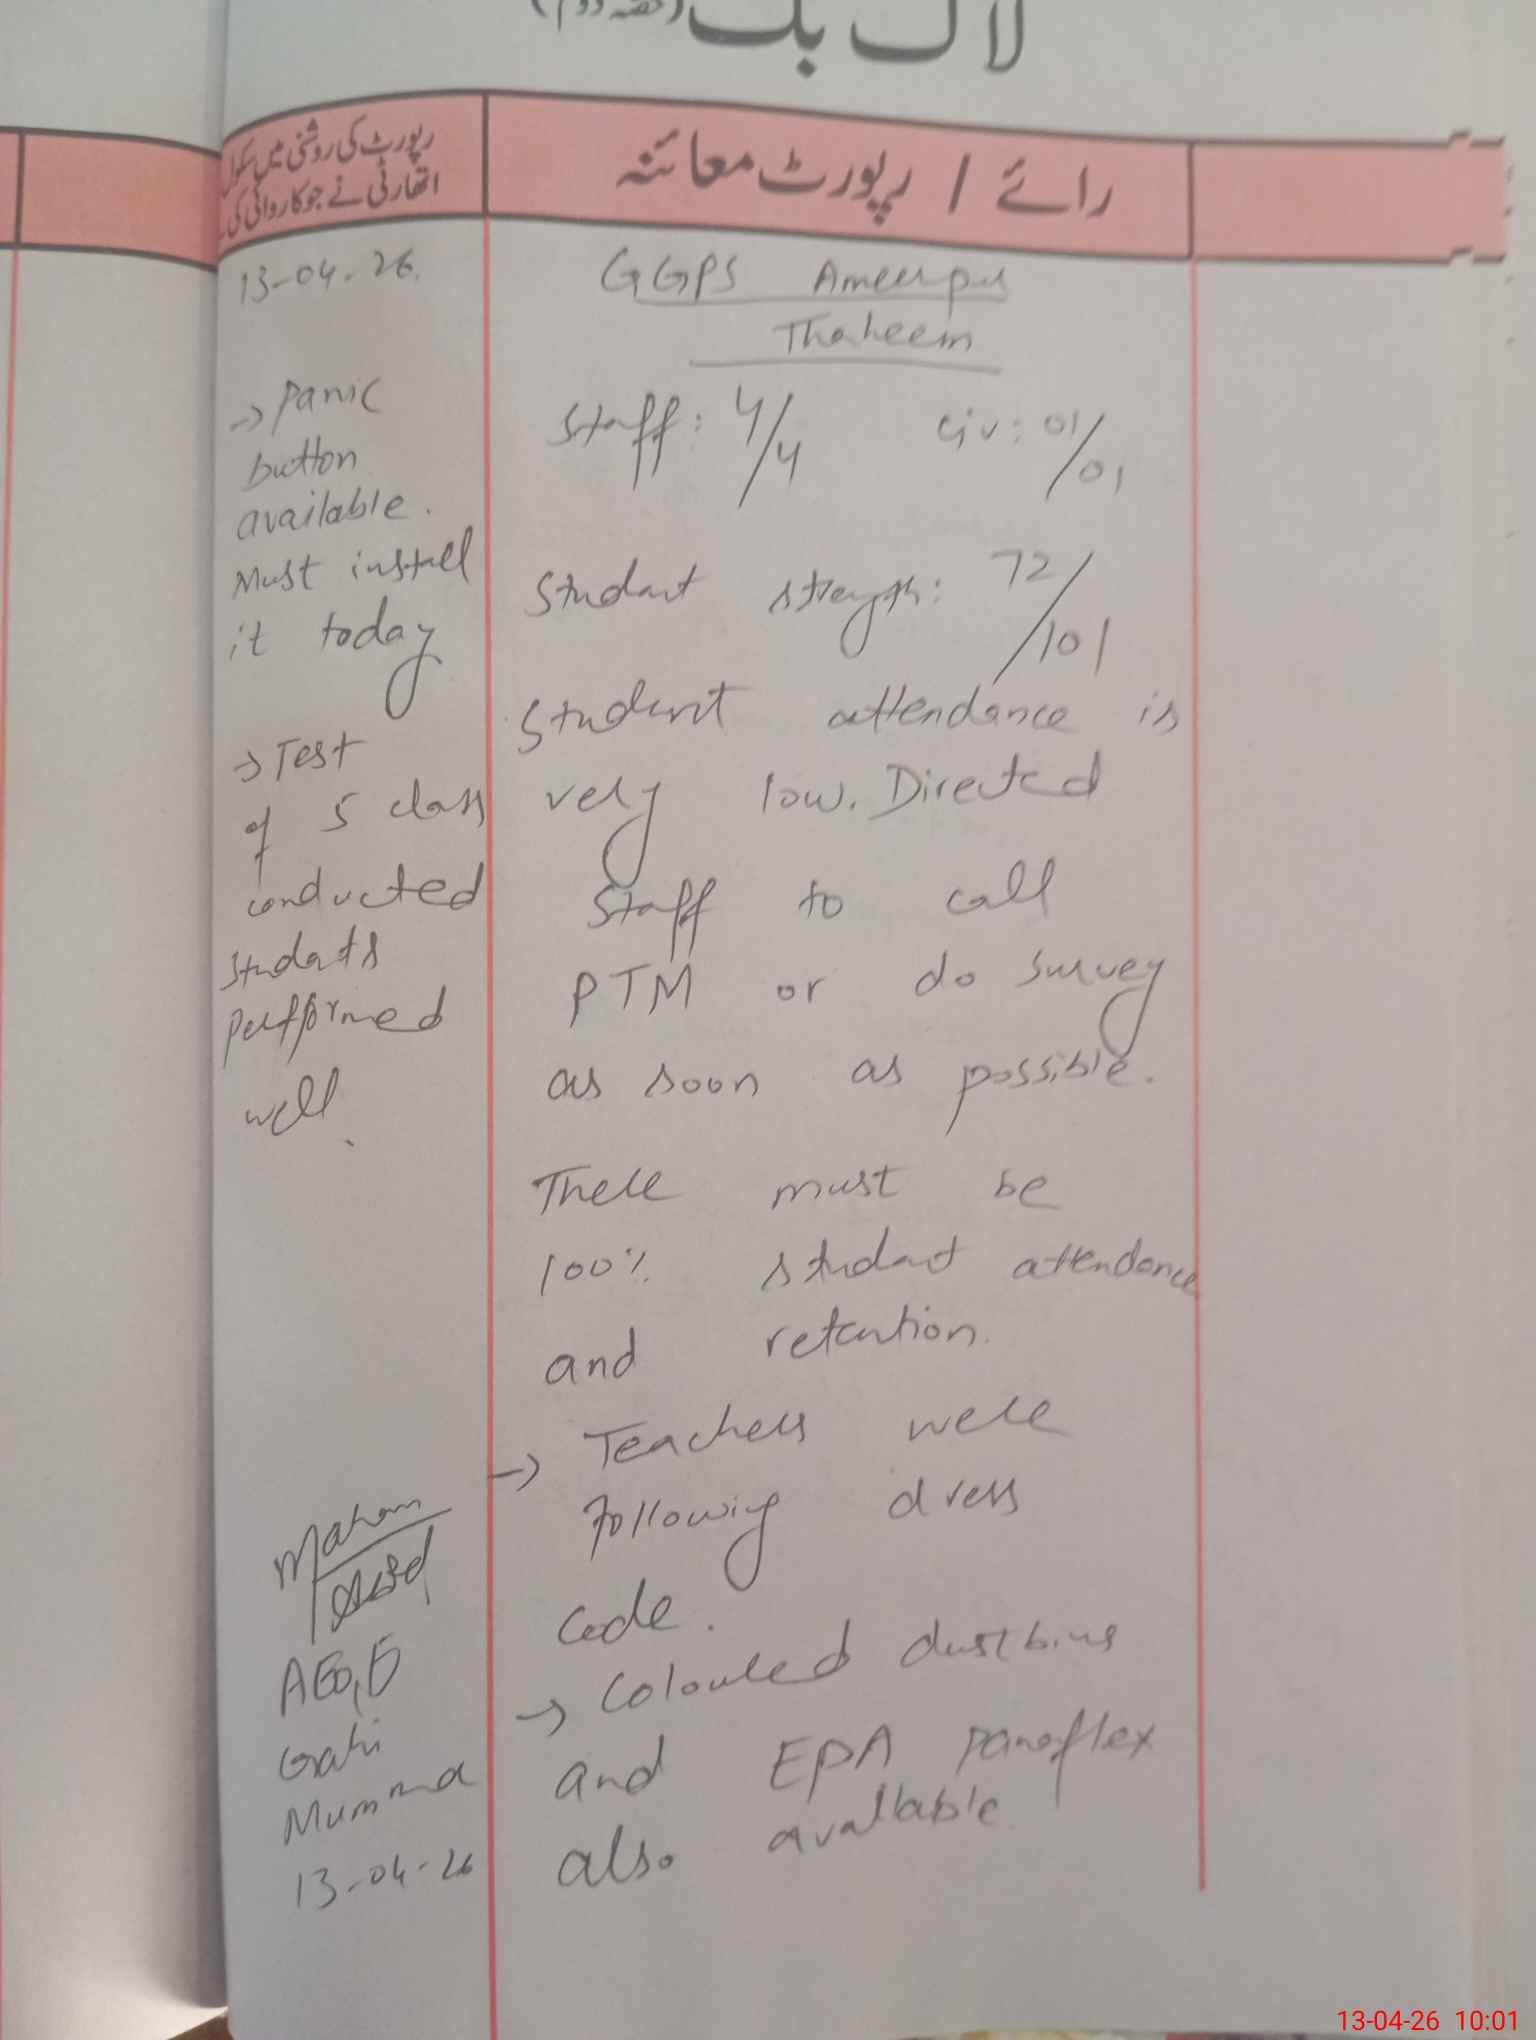 لاگ بک (حصہ دوم)
رپورٹ کی روشنی میں سکول
اتھارٹی نے جو کاروائی کی
رائے / رپورٹ معائنہ
13-04-26.
→ Panic
button
available.
Must install
it today
→ Test
of 5 class
conducted
students
performed
well.
Maham
AEO,
Mumma
13-04-26
GGPS Ameerpur
Thaheem
Staff: 4/4 Civ: 01/01
Student strength: 72/101
Student attendance is
very low. Directed
Staff to call
PTM or do survey
as soon as possible.
There must be
100% student attendance
and retention.
→ Teachers were
following dress
Code.
→ Coloured dustbins
and EPA panaflex
also available
13-04-26 10:01